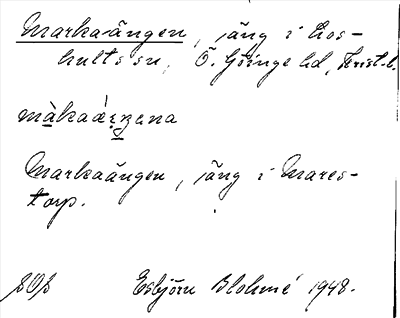 Markaängen, säng i Los-
hults sn, Ö. Göinge hd, Krist. l.
Markaängen, säng i Mares-
torp.
Esbjörn Blohmé 1948.